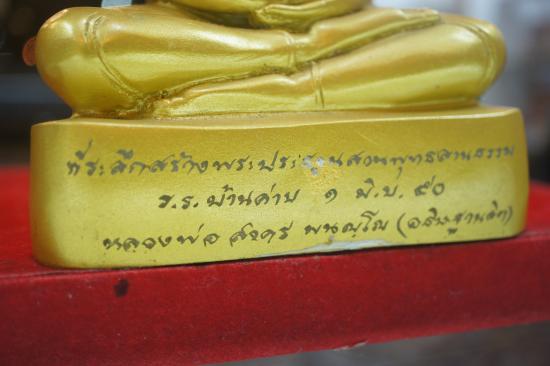 ที่ระลึกสร้างพระประธานสวนพุทธสานธรรม
ร.ร. บ้านค่าย ๑ มิ.ย. ๕๐
หลวงพ่อ สาคร มนุญฺโญ (อธิษฐานจิต)